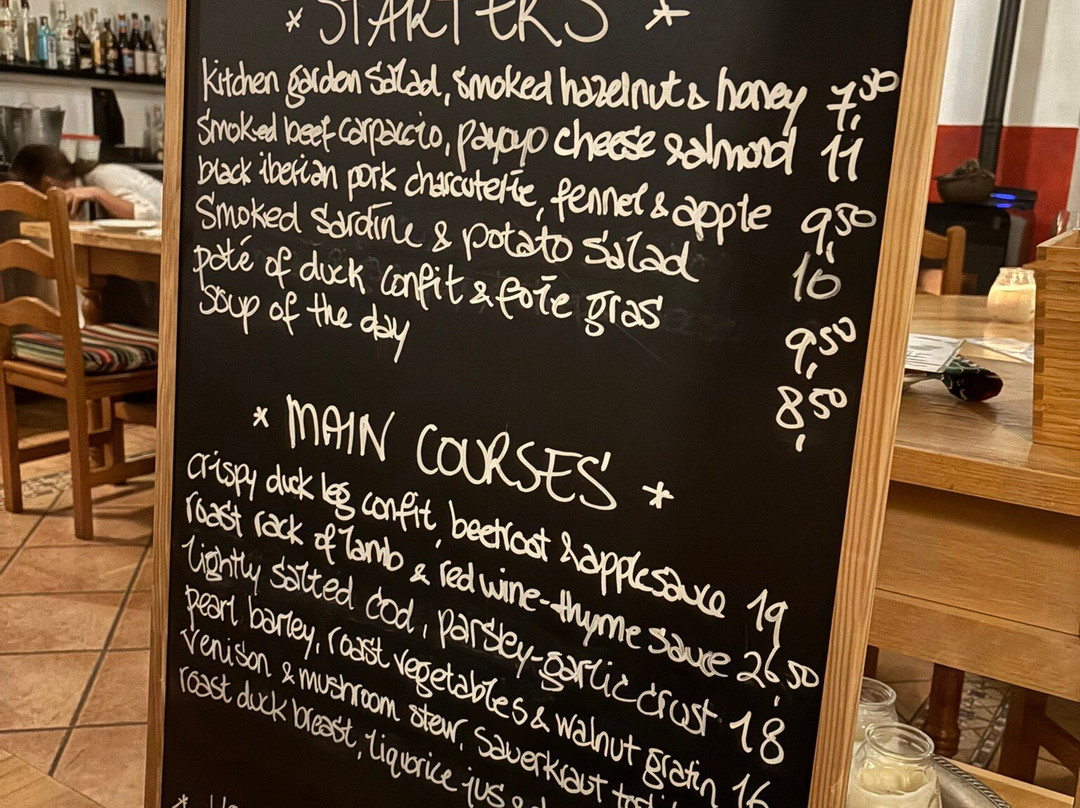 * STARTERS *
kitchen garden salad, smoked hazelnut & honey 7,50
smoked beef carpaccio, payoyo cheese & almond 11
black iberian pork charcuterie, fennel & apple 9,50
smoked sardine & potato salad 10
paté of duck confit & foie gras 9,50
soup of the day 8,50
* MAIN COURSES *
crispy duck leg confit, beetroot & applesauce 19
roast rack of lamb & red wine-thyme sauce 26,50
lightly salted cod, parsley-garlic crust 18
pearl barley, roast vegetables & walnut gratin 16
venison & mushroom stew, sauerkraut
roast duck breast, liquorice jus &
*